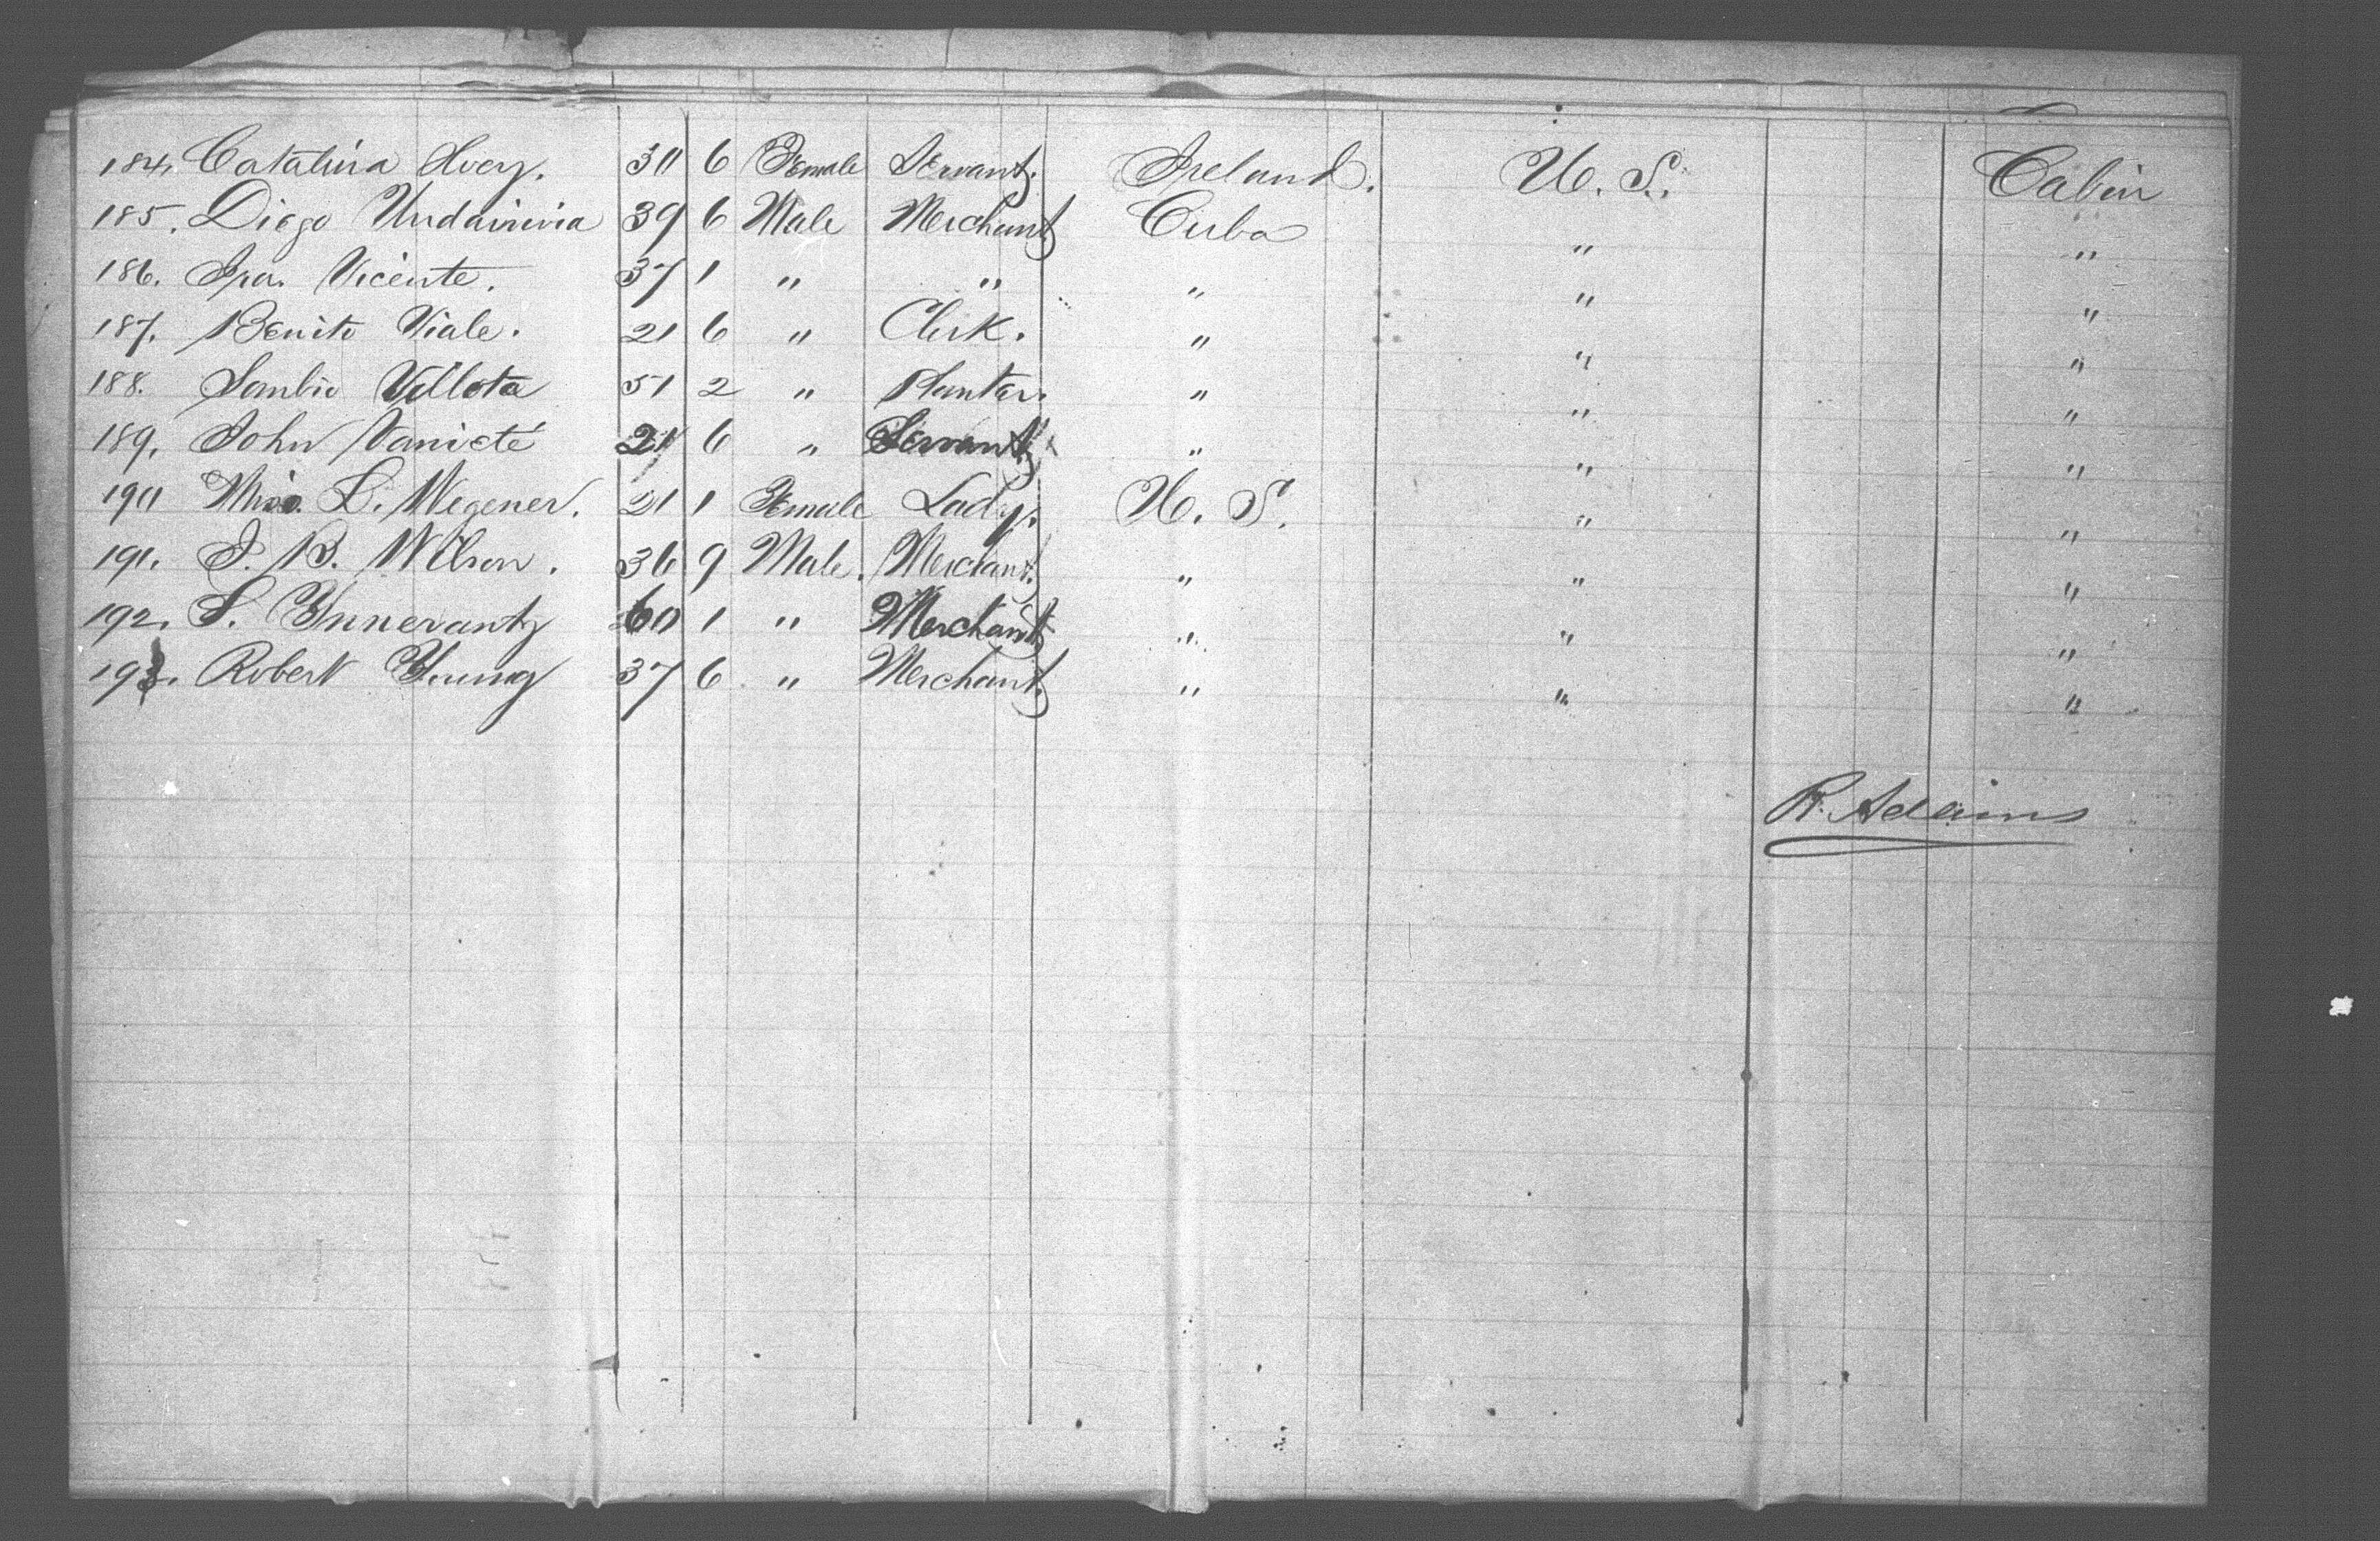 184. Catalina Avery. 30 6 Female Servant. Ireland. U. S. Cabin
185. Diego Undainivia 39 6 Male Merchant Cuba " "
186. Vicente. 37 1 " " " " "
187. Benito Viale. 21 6 " Clerk. " " "
188. Villota 51 2 " Planter. " " "
189. John 21 6 " Servant " " "
190 Miss. L. Wegener. 21 1 Female Lady. U. S. " "
191. J. B. Wilson. 36 9 Male. Merchant. " " "
192. S. 60 1 " Merchant " " "
193. Robert Young 37 6 " Merchant " " "
R. Adams